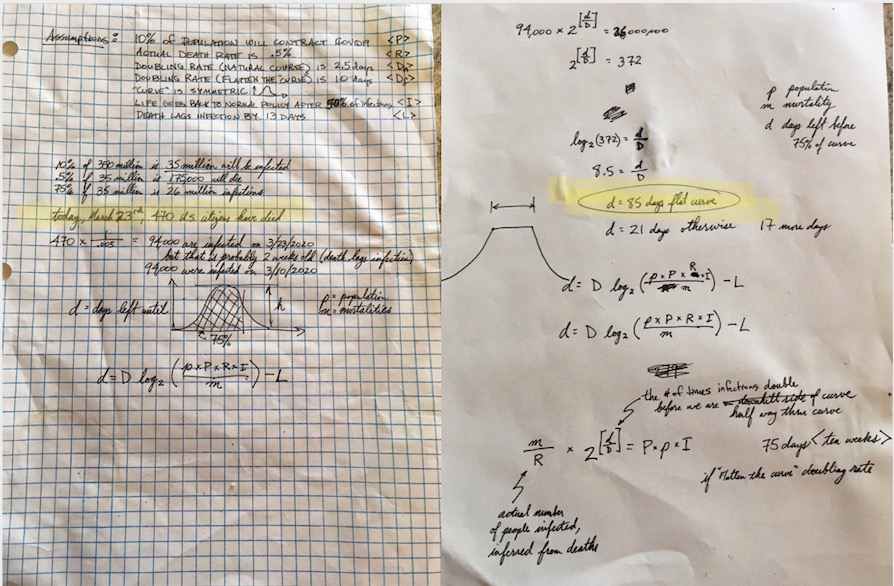 Assumptions: 10% of POPULATION WILL CONTRACT COVID19 <P>
ACTUAL DEATH RATE IS .5% <R>
DOUBLING RATE (NATURAL COURSE) IS 2.5 days
DOUBLING RATE (FLATTEN THE "CURVE") IS 10 days
"CURVE" IS SYMMETRIC
LIFE GOES BACK TO NORMAL POLICY AFTER 50% of infections <I>
DEATH LAGS INFECTION BY 13 DAYS <L>
10% of 350 million is 35 million will be infected
.5% of 35 million is 175000 will die
75% of 35 million is 26 million infections
today, March 23rd, 470 U.S. citizens have died
470 × 1/.005 = 94000 are infected on 3/23/2020
but that is probably 2 weeks old (death lags infection)
94000 were infected on 3/10/2020
d = days left until
75%
h
p = population
m = mortalities
d = D log₂ (p×P×R×I / m) - L
94,000 × 2^[d/D] = 26,000,000
2^[d/D] = 372
log₂(372) = d/D
8.5 = d/D
d = 85 days flat curve
d = 21 days otherwise 17 more days
p population
m mortality
d days left before
75% of curve
d = D log₂ (p×P×R×I / m) - L
d = D log₂ (p×P×R×I / m) - L
the # of times infections double
before we are downhill side of curve
half way thru curve
m/R × 2^[d/D] = P×p×I
75 days <ten weeks>
if "flatten the curve" doubling rate
actual number
of people infected,
inferred from deaths